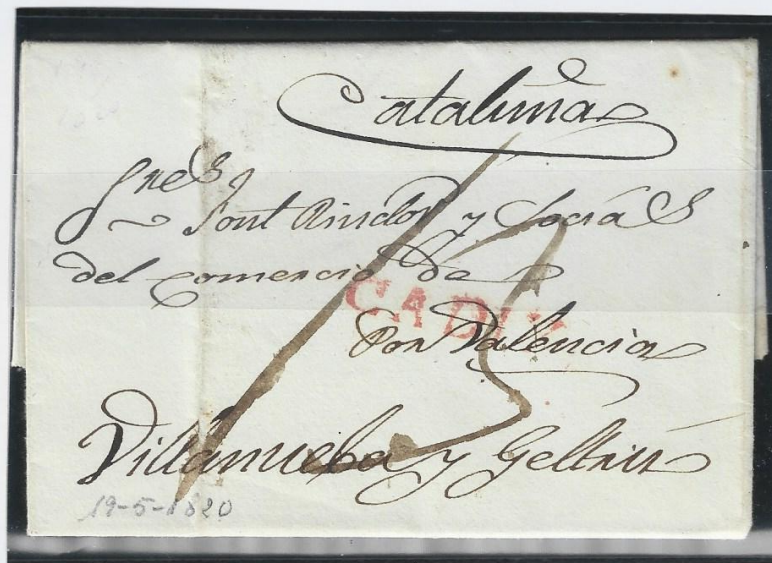 Cataluña
Sres
Font Rindor y Socias
del comercio de
CADIZ
Por Valencia
Villanueba y Geltrú
13
19-5-1820